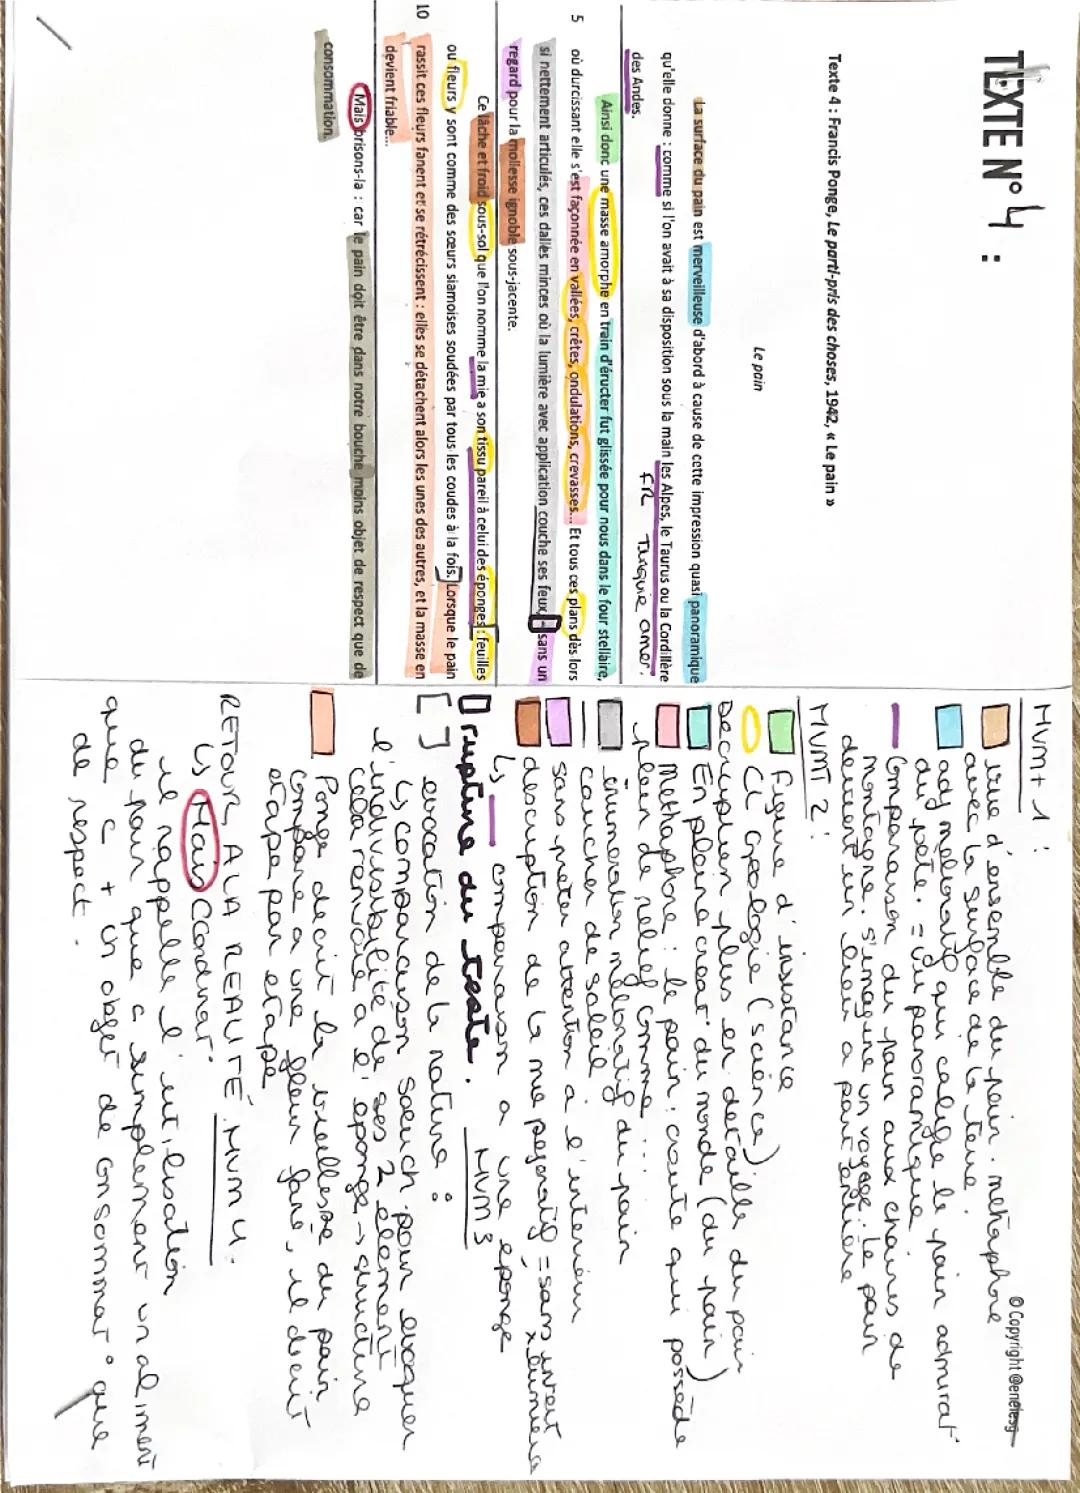 TEXTE N° 4 :
Texte 4 : Francis Ponge, Le parti-pris des choses, 1942, « Le pain »
Le pain
La surface du pain est merveilleuse d'abord à cause de cette impression quasi panoramique
qu'elle donne : comme si l'on avait à sa disposition sous la main les Alpes, le Taurus ou la Cordillère
des Andes.
FR Turquie amer.
Ainsi donc une masse amorphe en train d'éructer fut glissée pour nous dans le four stellaire,
5 où durcissant elle s'est façonnée en vallées, crêtes, ondulations, crevasses... Et tous ces plans dès lors
si nettement articulés, ces dalles minces où la lumière avec application couche ses feux, - sans un
regard pour la mollesse ignoble sous-jacente.
Ce lâche et froid sous-sol que l'on nomme la mie a son tissu pareil à celui des éponges : feuilles
ou fleurs y sont comme des sœurs siamoises soudées par tous les coudes à la fois. Lorsque le pain
10 rassit ces fleurs fanent et se rétrécissent : elles se détachent alors les unes des autres, et la masse en
devient friable...
Mais brisons-la : car le pain doit être dans notre bouche moins objet de respect que de
consommation.
© Copyright @enelesg
Mvmt 1 :
vue d'ensemble du pain. métaphore
avec la surface de la terre.
adj mélioratif qui calife le pain admirat°
du poète. = vu panoramique
Comparaison du pain aux chaines de
montagne. s'imagine un voyage. le pain
devient un lieu a part entière
MVMT 2 :
figure d'insistance
CL Géologie (science)
Description plus en detaille du pain
En pleine creat° du monde (du pain)
Methaphore : le pain : croute qui possède
plein de relief comme ....
énumeration mélioratif du pain
coucher de soleil
sans preter attention à l'interieur
description de la mie pejoratif = sans interet
x lumiere
↳ comparaison a une eponge
rupture du texte. MVM 3
[ ] evocation de la nature :
↳ comparaison soeurs s. pour evoquer
l'indivisibilité de ses 2 element
cela renvoie a l'eponge → structure
Ponge decrit la vieillesse du pain
compare a une fleur fané, il decrit
etape par etape
RETOUR A LA REALITÉ. MVM 4.
↳ Mais (Cordinat°
il rappelle l'utilisation
du pain que c simplement un aliment
que c + un objet de consommat° que
de respect.